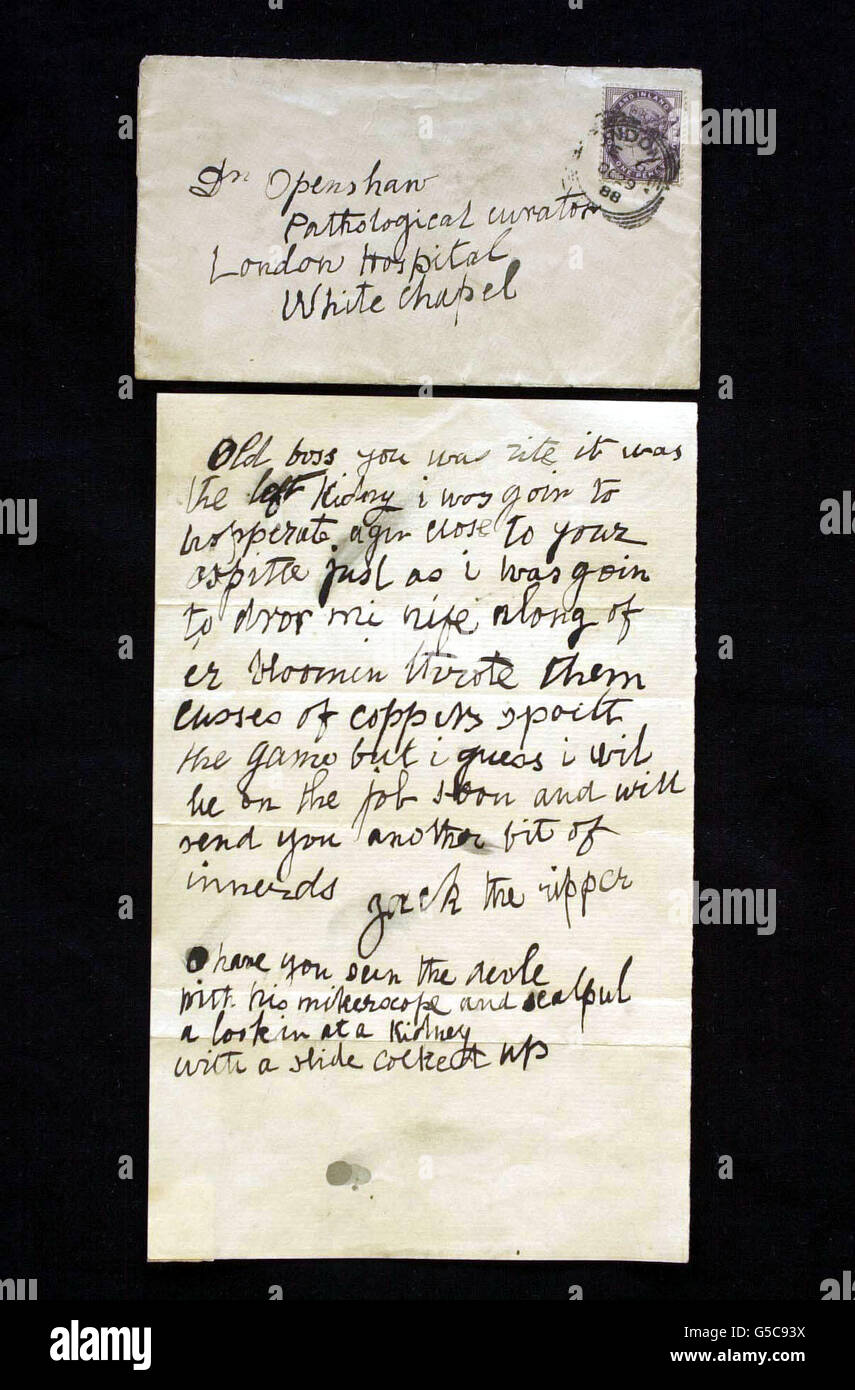 AND INLAND
LONDON
OC 29
88
ONE PENNY
Dr Openshaw
Pathological curator
London Hospital
White chapel
Old boss you was rite it was
the left kidny i was goin to
hopperate agin close to your
ospitle just as i was goin
to dror mi nife along of
er bloomin throte them
cusses of coppers spoilt
the game but i guess i wil
be on the job soon and will
send you another bit of
innerds Jack the ripper
O have you seen the devle
with his mikerscope and scalpul
a lookin at a Kidney
with a slide cocked up
alamy
a
alamy
Image ID: G5C93X
www.alamy.com